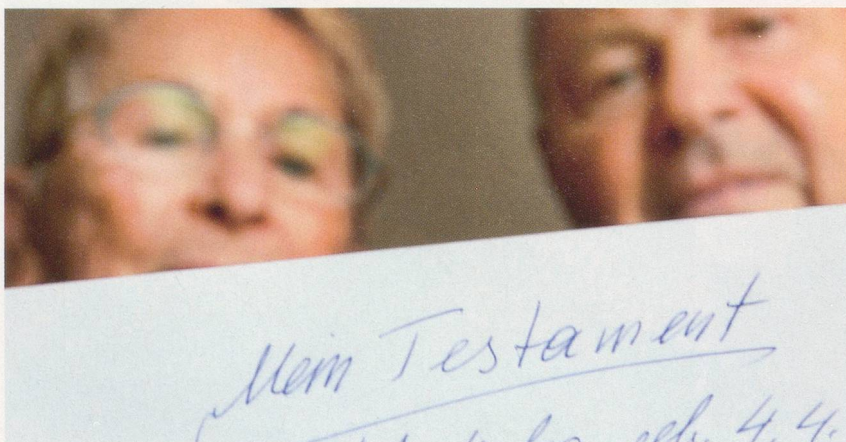 Mein Testament
geb. 4.4.